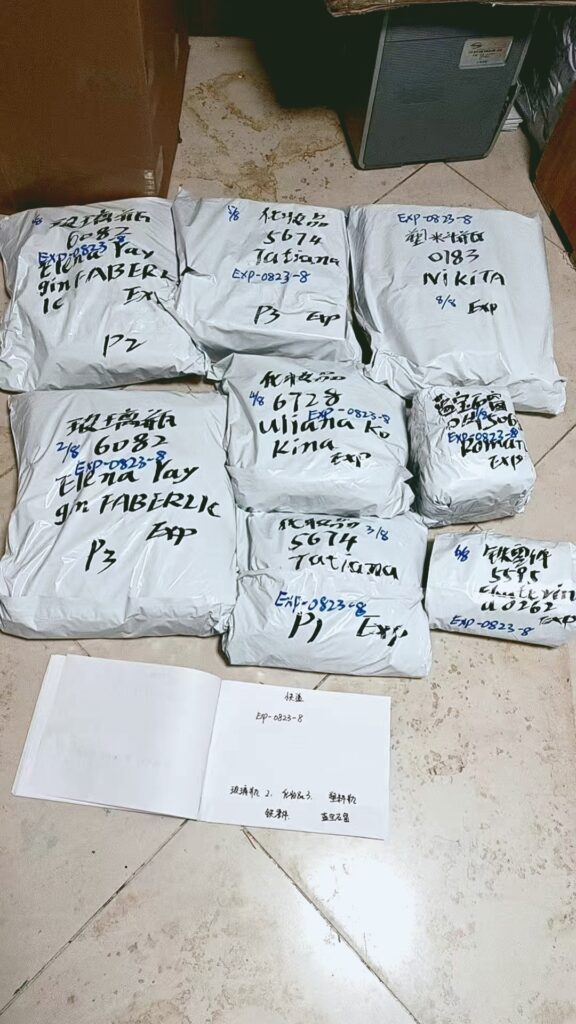 玻璃瓶
6082
EXP-0823-8
Elena Yay
gin FABERL
IC
Exp
P2
化妆品
5674
Tatiana
EXP-0823-8
P3 Exp
EXP-0823-8
塑料瓶
0183
NIKITA
8/8 Exp
玻璃瓶
2/8 6082
EXP-0823-8
Elena Yay
gin FABERLIC
Exp
P3
化妆品
6728
EXP-0823-8
Uliana Ko
Kina
Exp
化妆品 3/8
5674
Tatiana
EXP-0823-8
P1 Exp
EXP-0823-8
Roman
EXP
6/8
5595
a0262 Exp
EXP-0823-8
快递
EXP-0823-8
玻璃瓶2. 化妆品3. 塑料瓶
铁零件 蓝宝石窗